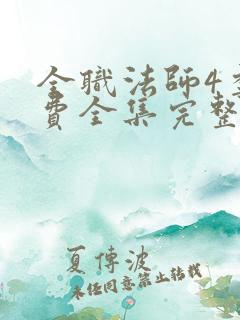 全職法師4
費全集完整
夏傳波
未经同意禁止转载